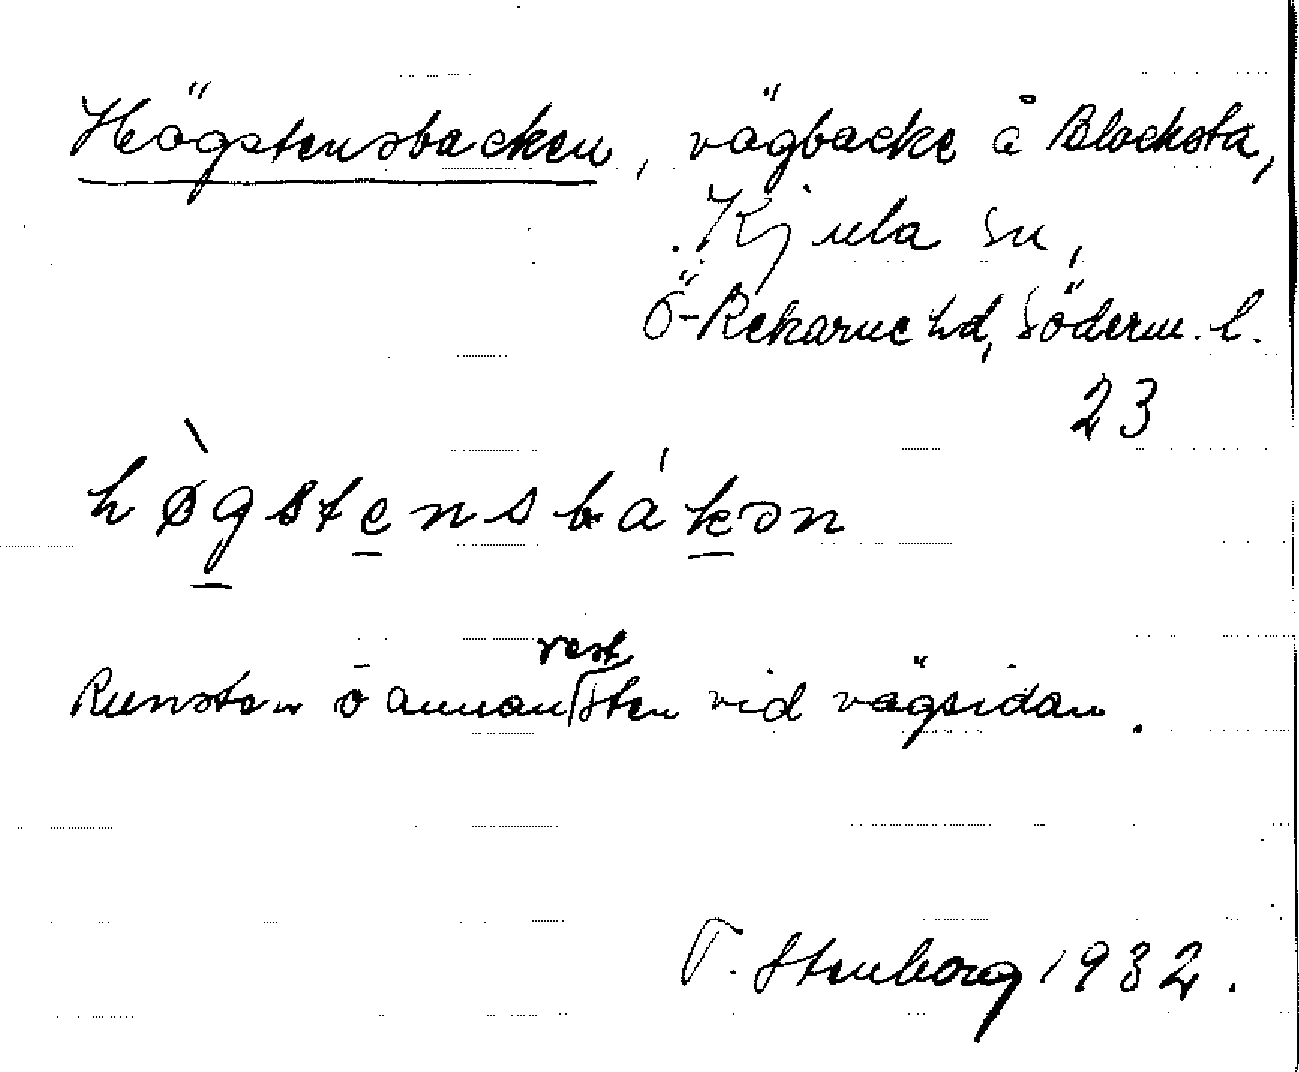 Högstensbacken, vägbacke å Blacksta,
Kjula sn,
Ö-Rekarne hd, Söderm. l.
23
hø̀gstensbákən
Runsten o annan rest sten vid vägsidan.
T. Stenborg 1932.